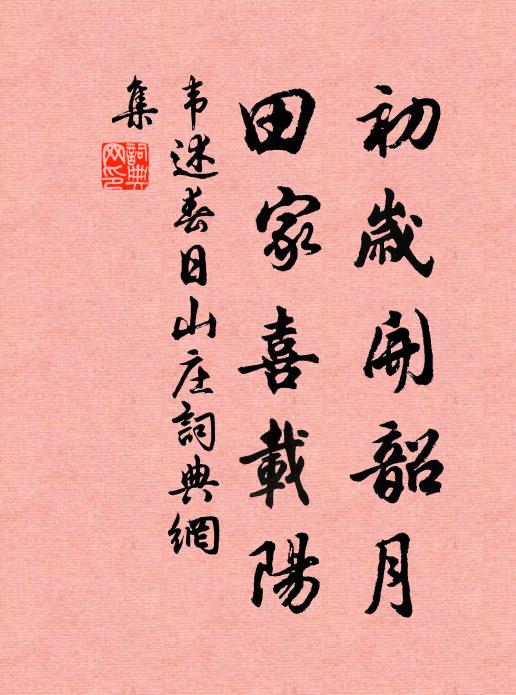 初歲開韶月
田家喜載陽
韦述春日山庄詞典網
集
詞典網印